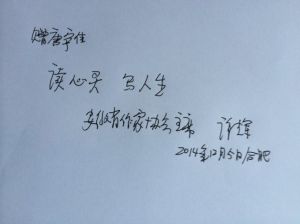 赠唐宇佳
读心灵 写人生
安徽省作家协会主席 许辉
2014年12月5日合肥